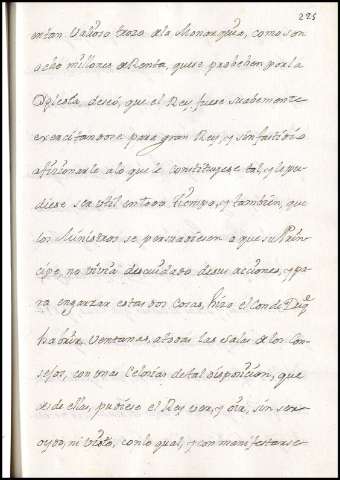 225
en tan valioso trozo de la Monarquia, como son
ocho millones de Renta, que se probehen por la
deseó, que el Rey fuese suabemente
exercitandose para gran Rey, y sin fastidio
aficionarle alo que le constituyese tal, y le pu-
diese ser util en todo tiempo, y tambien, que
los Ministros se persuadiesen a que su Prin-
cipe, no vivia descuidado de sus acciones, y pa-
ra engarzar estas dos cosas, hizo el Conde Duq.e
habrir Ventanas, atodas las Salas de los Con-
sejos, con unas Celosias de tal disposicion, que
desde ellas, pudiese el Rey ver, y oir, sin ser
oydo, ni visto, con lo qual, y con manifestarse